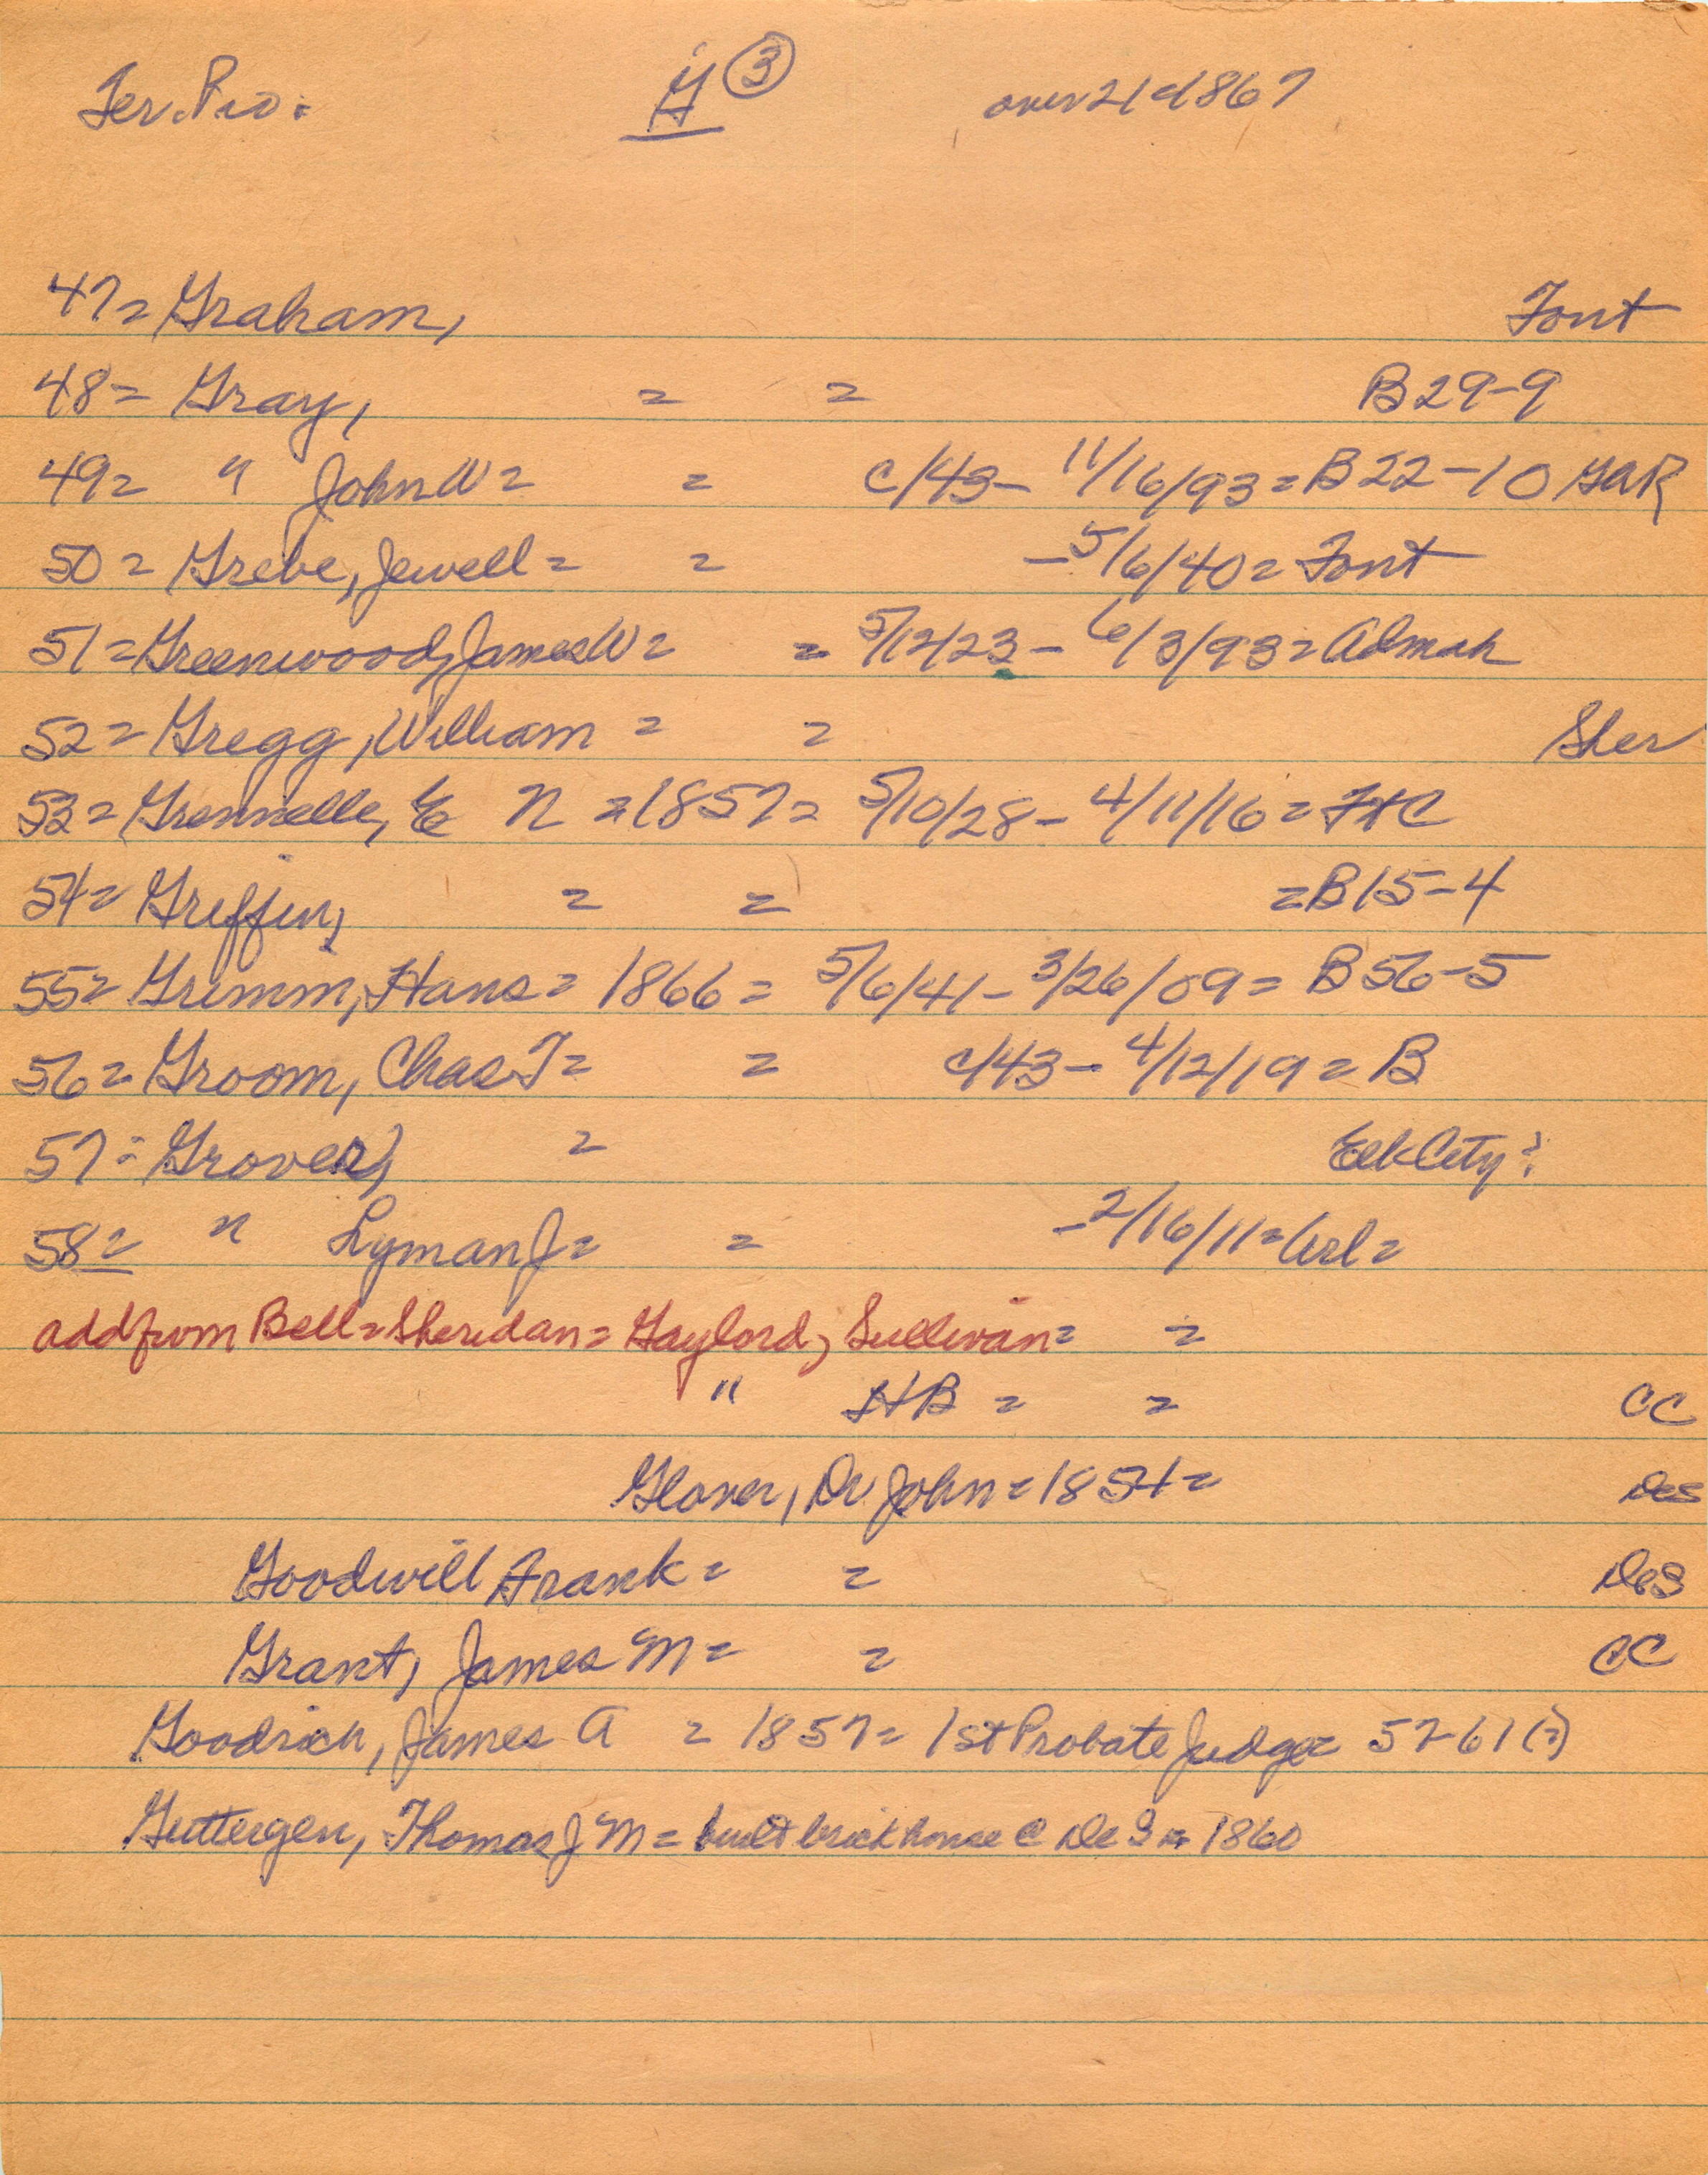 Ter. Pio: G ③ over 21 c/1867
47= Graham, Font
48= Gray, = = B29-9
49= " John W = = c/43- 11/16/93 = B22-10 GAR
50= Grebe, Jewell = = -5/6/40 = Font
51= Greenwood, James W = = 5/12/23 - 6/3/93 = Admah
52= Gregg, William = = Sher
53= Grennelle, E N = 1857= 5/10/28 - 4/11/16 = FtC
54= Griffin, = = =B15-4
55= Grimm, Hans = 1866 = 5/6/41 - 3/26/09 = B56-5
56= Groom, Chas T= = c/43- 4/12/19 = B
57= Grover, = Elk City?
58= " Lyman J= = -2/16/11=Arl=
add from Bell=Sheridan= Gaylord, Sullivan= =
" HB = = CC
Glover, Dr. John = 1854= DeS
Goodwill Frank= = DeS
Grant, James M= = CC
Goodrich, James A = 1857= 1st Probate Judge= 57-61(?)
Guttergen, Thomas J M= built brick house @ DeS = 1860